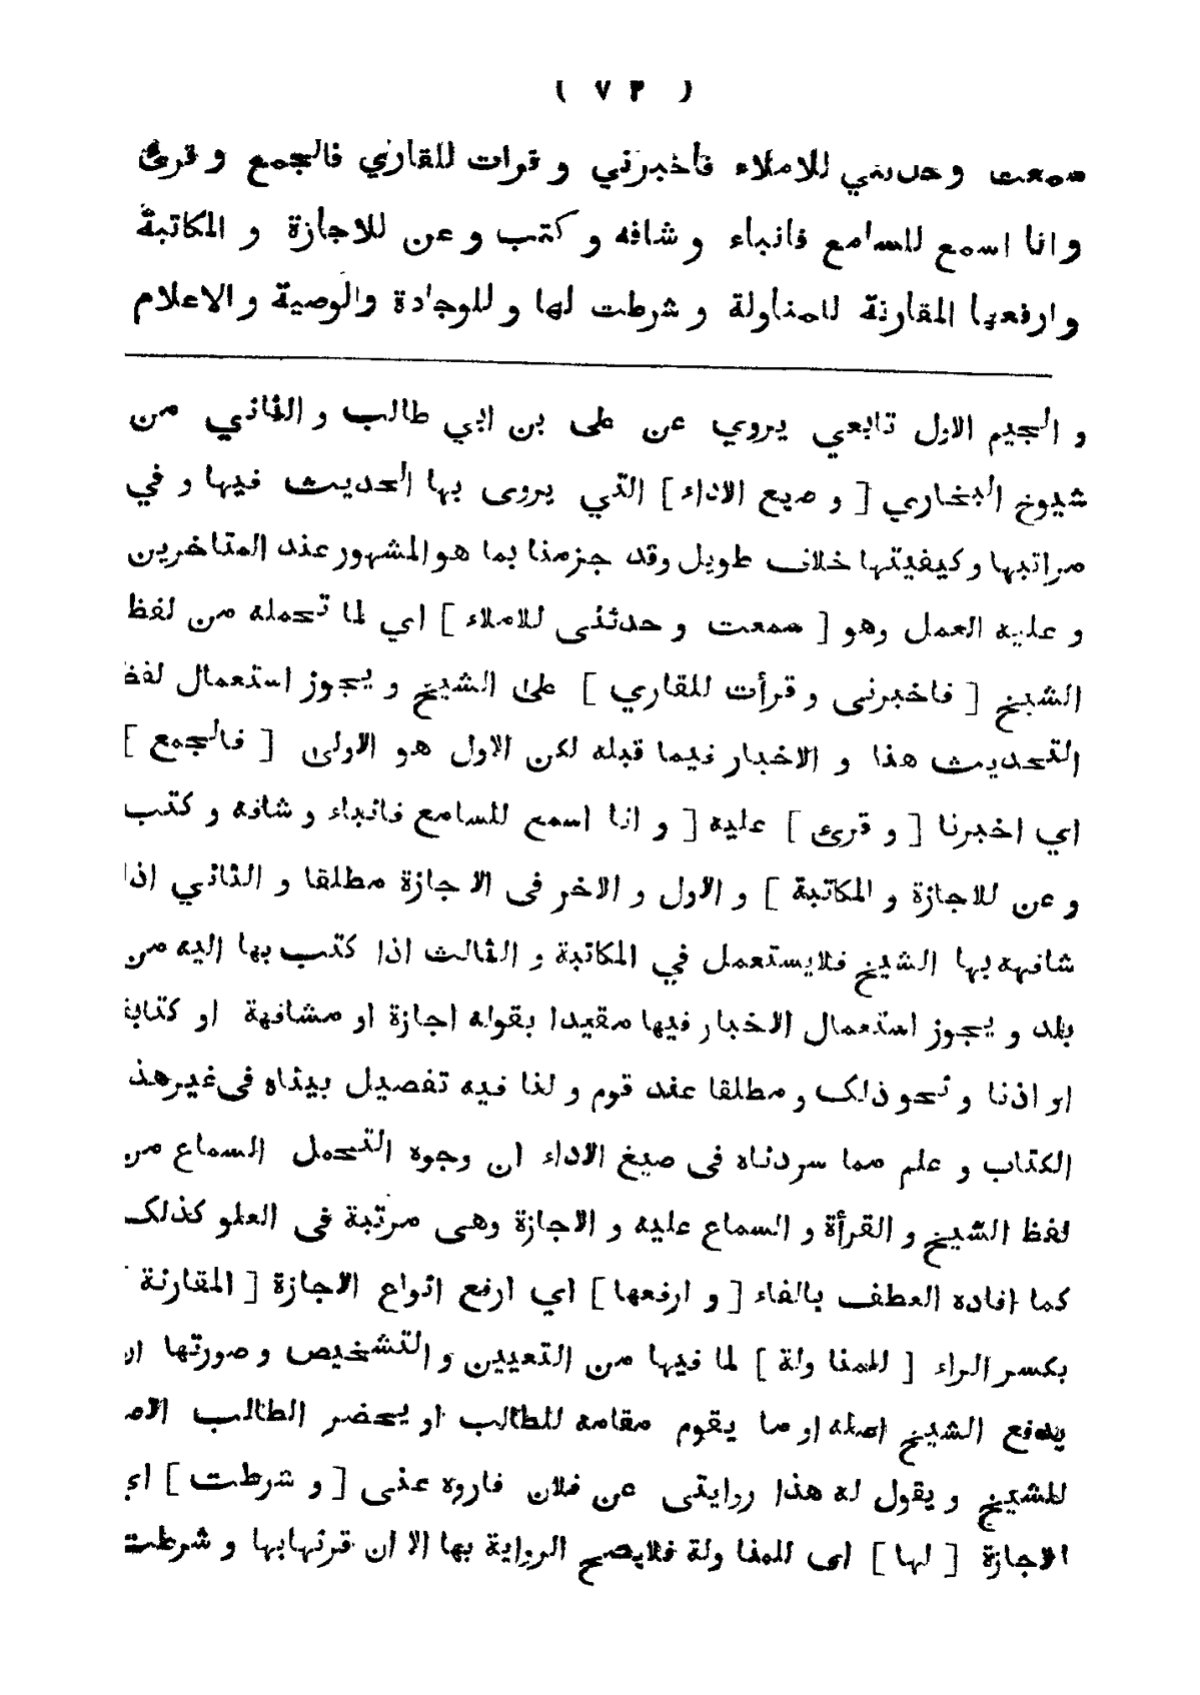 ( ٧٣ )
سمعت وحدثني للاملاء فأخبرني و قرات للقارئي فالجمع و قرئ
وانا اسمع للسامع فانباء و شافه و كتب و عن للاجازة و المكاتبة
و ارفعها المقارنة للمناولة و شرطت لها و للوجادة والوصية و الاعلام
و الجيم الاول تابعي يروي عن على بن ابي طالب و الثاني من
شيوخ البخاري [ و صيع الاداء ] التي يروى بها الحديث فيها و في
مراتبها وكيفيتها خلاف طويل وقد جزمنا بما هو المشهور عند المتاخرين
و عليه العمل وهو [ سمعت و حدثنى للاملاء ] اي لما تحمله من لفظ
الشيخ [ فاخبرنى و قرأت للقاري ] على الشيخ و يجوز استعمال لفظ
التحديث هذا و الاخبار فيما قبله لكن الاول هو الاولى [ فالجمع ]
اي اخبرنا [ و قرئ ] عليه [ و انا اسمع للسامع فانباء و شافه و كتب
و عن للاجازة و المكاتبة ] و الاول و الاخر فى الا جازة مطلقا و الثاني اذا
شافهه بها الشيخ فلايستعمل في المكاتبة و الثالث اذا كتب بها اليه من
بلد و يجوز استعمال الاخبار فيها مقيدا بقوله اجازة او مشافهة او كتابة
او اذنا و نحو ذلك و مطلقا عند قوم و لنا فيه تفصيل بيناه فى غير هذ
الكتاب و علم مما سردناه فى صيغ الاداء ان وجوه التحمل السماع من
لفظ الشيخ و القرأة و السماع عليه و الاجازة وهى مرتبة فى العلو كذلك
كما افاده العطف بالفاء [ و ارفعها ] اي ارفع انواع الاجازة [ المقارنة
بكسر الراء [ للمنا ولة ] لما فيها من التعيين و التشخيص و صورتها ان
يدفع الشيخ اصله او ما يقوم مقامه للطالب او يحضر الطالب الاص
للشيخ و يقول له هذا روايتى عن فلان فاروه عنى [ و شرطت ] اي
الاجازة [ لها ] اى للمنا ولة فلايصح الرواية بها الا ان قرنهابها و شرطت